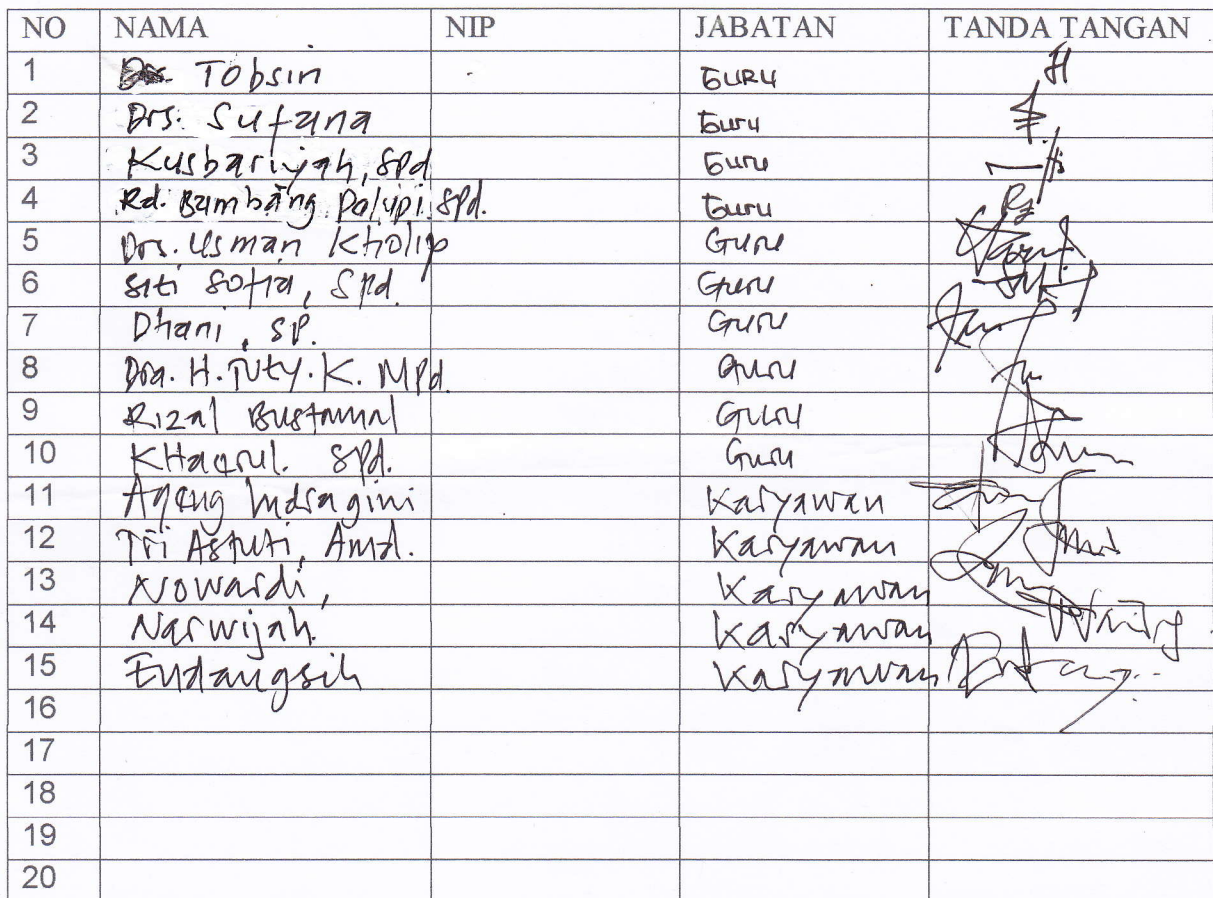 NO NAMA NIP JABATAN TANDA TANGAN
1 Tobsin GURU
2 Drs. Sutana Guru
3 Kusbariyah, SPd Guru
4 Rd. Bambang Polupi. SPd. Guru
5 Drs. Usman Kholip Guru
6 Siti Sofia, SPd. Guru
7 Dhani, SP. Guru
8 Dra. H. Tuty. K. MPd. Guru
9 Rizal Bustamal Guru
10 KHaerul. SPd. Guru
11 Ageng Indragini Karyawan
12 Tri Astuti, Amd. Karyawan
13 Nowardi, Karyawan
14 Narwijah. Karyawan
15 Endangsih Karyawan
16
17
18
19
20